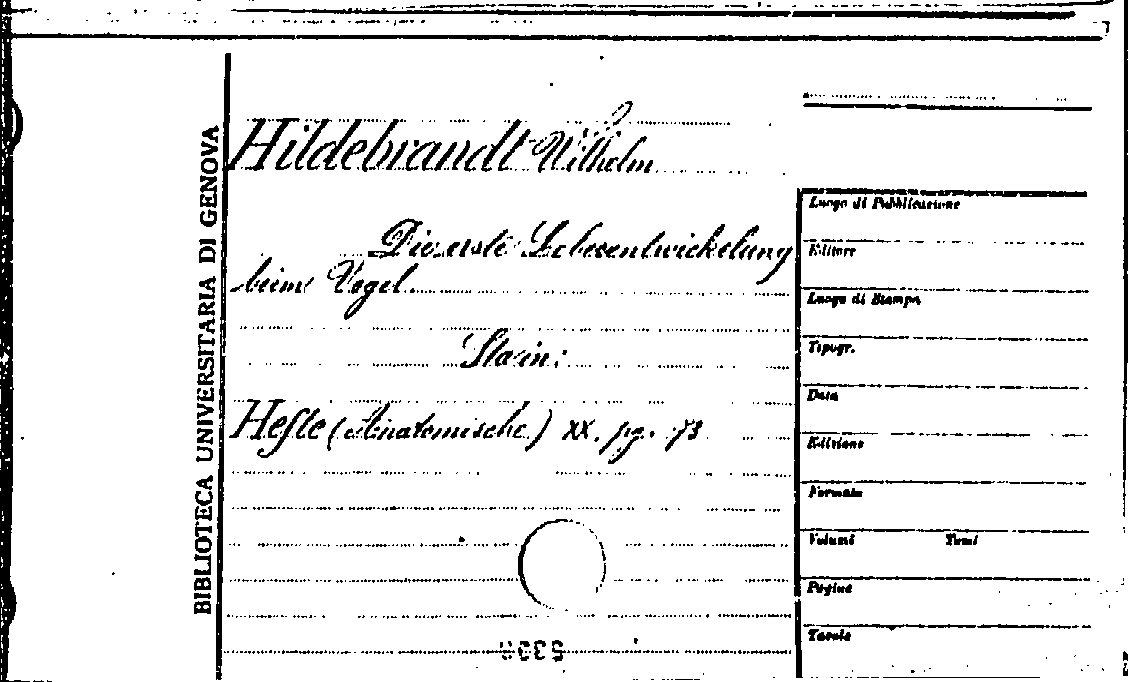 BIBLIOTECA UNIVERSITARIA DI GENOVA
Hildebrandt Wilhelm
Die erste Leberentwickelung
beim Vogel.
Sta in:
Hefte (Anatomische) XX. pg. 73
Luogo di Pubblicazione
Editore
Luogo di Stampa
Tipogr.
Data
Edizione
Formato
Volumi Tomi
Pagine
Tavole